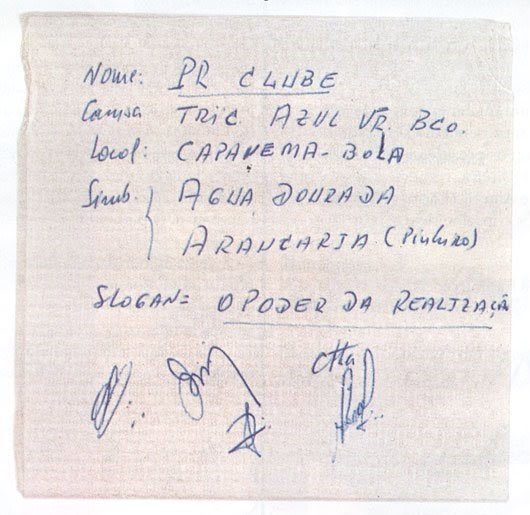 Nome: PR CLUBE
Camisa TRIC. AZUL VR. BCO.
Local: CAPANEMA - BOLA
Simb. { AGUA DOURADA
ARAUCARIA (Pinheiro)
SLOGAN = O PODER DA REALIZAÇÃO